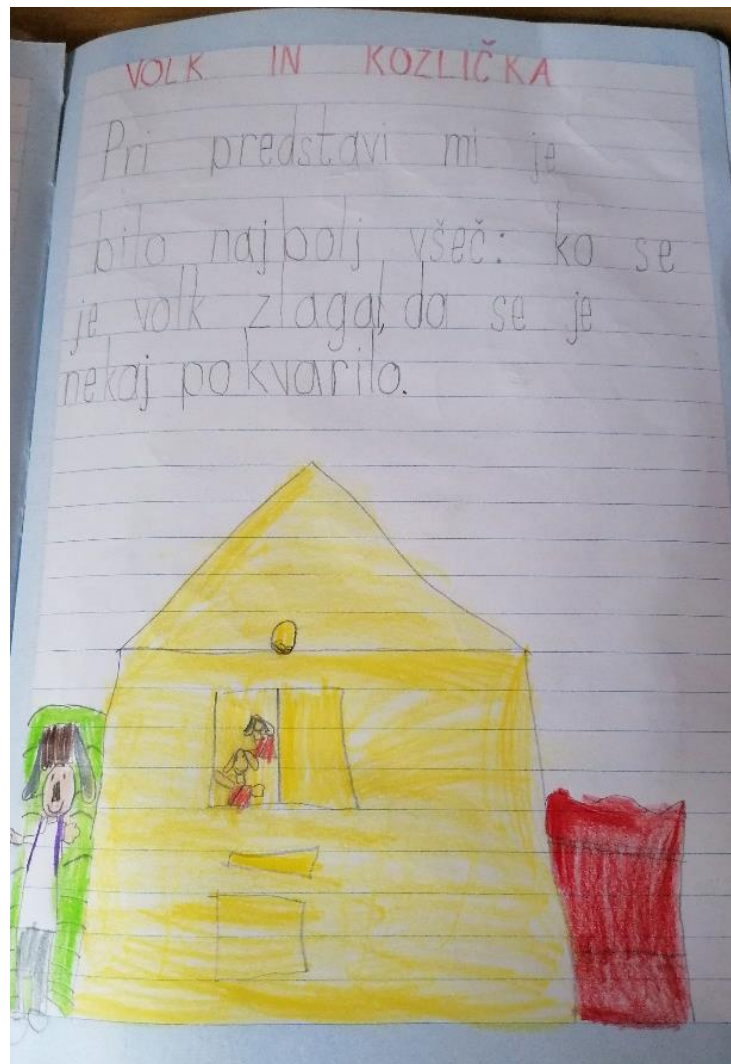 VOLK IN KOZLIČKA
Pri predstavi mi je
bilo najbolj všeč: ko se
je volk zlagal, da se je
nekaj pokvarilo.